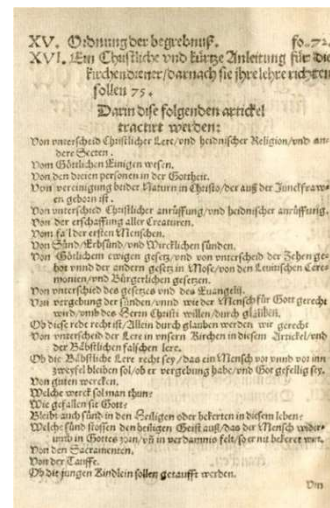 XV. Ordnung der begrebnuß. fo. 72.
XVI. Ein Christliche vnd kürtze Anleitung für die
kirchendiener/ darnach sie jhre lehre richten
sollen 75.
Darin dise folgenden artickel
tractirt werden:
Von vnterscheid Christlicher Lere/ vnd heidnischer Religion/ vnd an
dere Secten.
Vom Göttlichen Einigen wesen.
Von den dreien personen in der Gottheit.
Von vereinigung beider Naturn in Christo/ der auß der Junckfraw-
en geborn ist.
Von vnterschied Christlicher anrüffung/ vnd heidnischer anrüffung.
Von der erschaffung aller Creaturen.
Vom fal der ersten Menschen.
Von Sünd/ Erbsünd/ vnd Wircklichen sünden.
Von Göttlichem ewigen gesetz/ vnd von vnterscheid der Zehen ge-
bot vnnd der andern gesetz in Mose/ von den Leuitischen Cere
monien/ vnd Bürgerlichen gesetzen.
Von vnterschied des gesetzes vnd des Euangelij.
Von vergebung der sünden/ vnnd wie der Mensch für Gott gerecht
wird/ vmb des Herrn Christi willen/ durch glauben.
Ob diese rede recht ist/ Allein durch glauben werden wir gerecht
Von vnterscheid der Lere in vnsern Kirchen in diesem Artickel/ vnd
der Bäbstlichen falschen lere.
Ob die Bäbstliche Lere recht sey/ das ein Mensch vor vnnd vor inn
zweyfel bleiben sol/ ob er vergebung habe/ vnd Got gefellig sey.
Von guten wercken.
Welche werck sol man thun:
Wie gefallen sie Gott:
Bleibt auch sünd in den Heiligen oder bekerten in diesem leben:
Welche sünd stossen den heiligen Geist auß/ das der Mensch wider-
umb in Gottes zorn/ vñ in verdamnis felt/ so er nit bekeret wirt.
Von den Sacramenten.
Von der Tauffe.
Ob die jungen Kindlein sollen getaufft werden.
Von